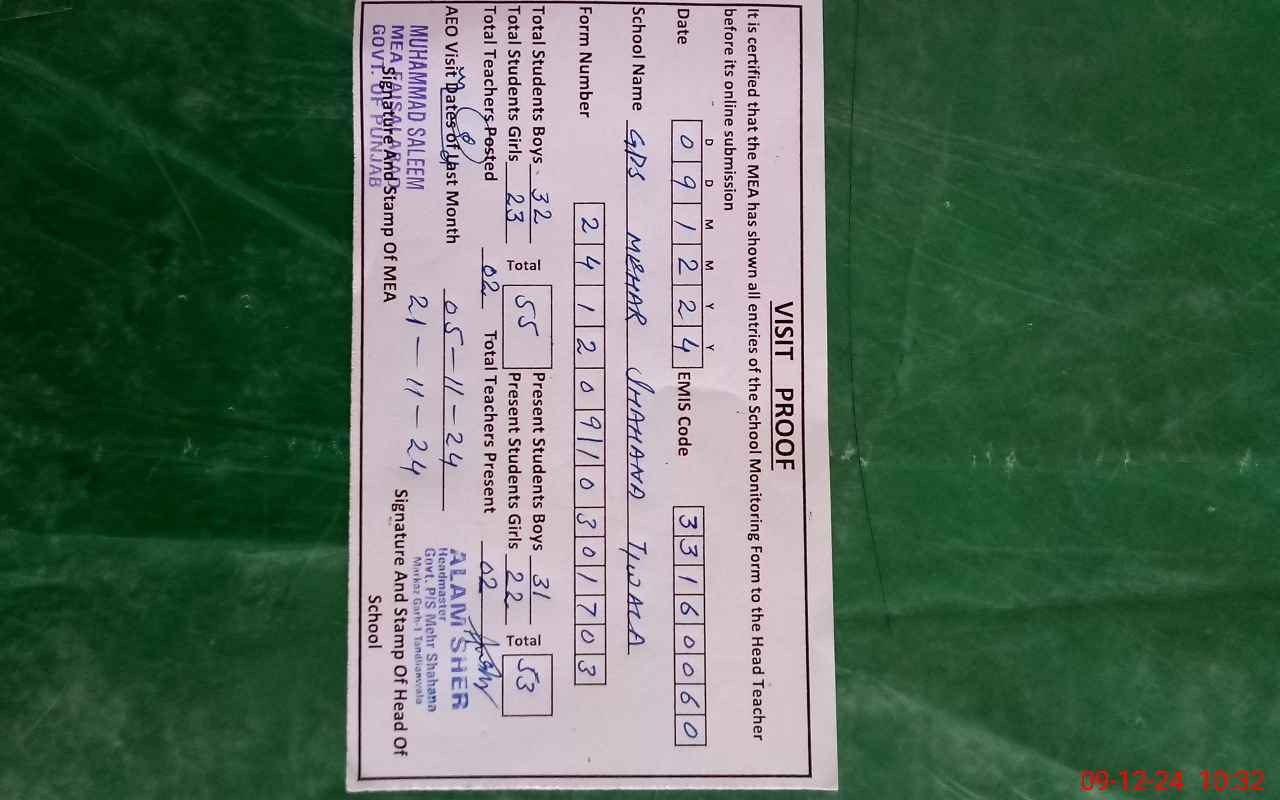 VISIT PROOF
It is certified that the MEA has shown all entries of the School Monitoring Form to the Head Teacher
before its online submission
D D M M Y Y
Date 0 9 1 2 2 4 EMIS Code 3 3 1 6 0 0 6 0
School Name GPS MEHAR SHAHANA T/WALA
Form Number 2 4 1 2 0 9 1 0 3 0 1 7 0 3
Total Students Boys 32 Total 55 Present Students Boys 31 Total 53
Total Students Girls 23 Present Students Girls 22
Total Teachers Posted 02 Total Teachers Present 02
AEO Visit Dates of Last Month 05-11-24
21-11-24
MUHAMMAD SALEEM
MEA FAISALABAD
GOVT. OF PUNJAB
Signature And Stamp Of MEA
ALAM SHER
Headmaster
Govt. P/S Mehr Shahana
Markaz Garh-1 Tandlianwala
Signature And Stamp Of Head Of
School
09-12-24 10:32